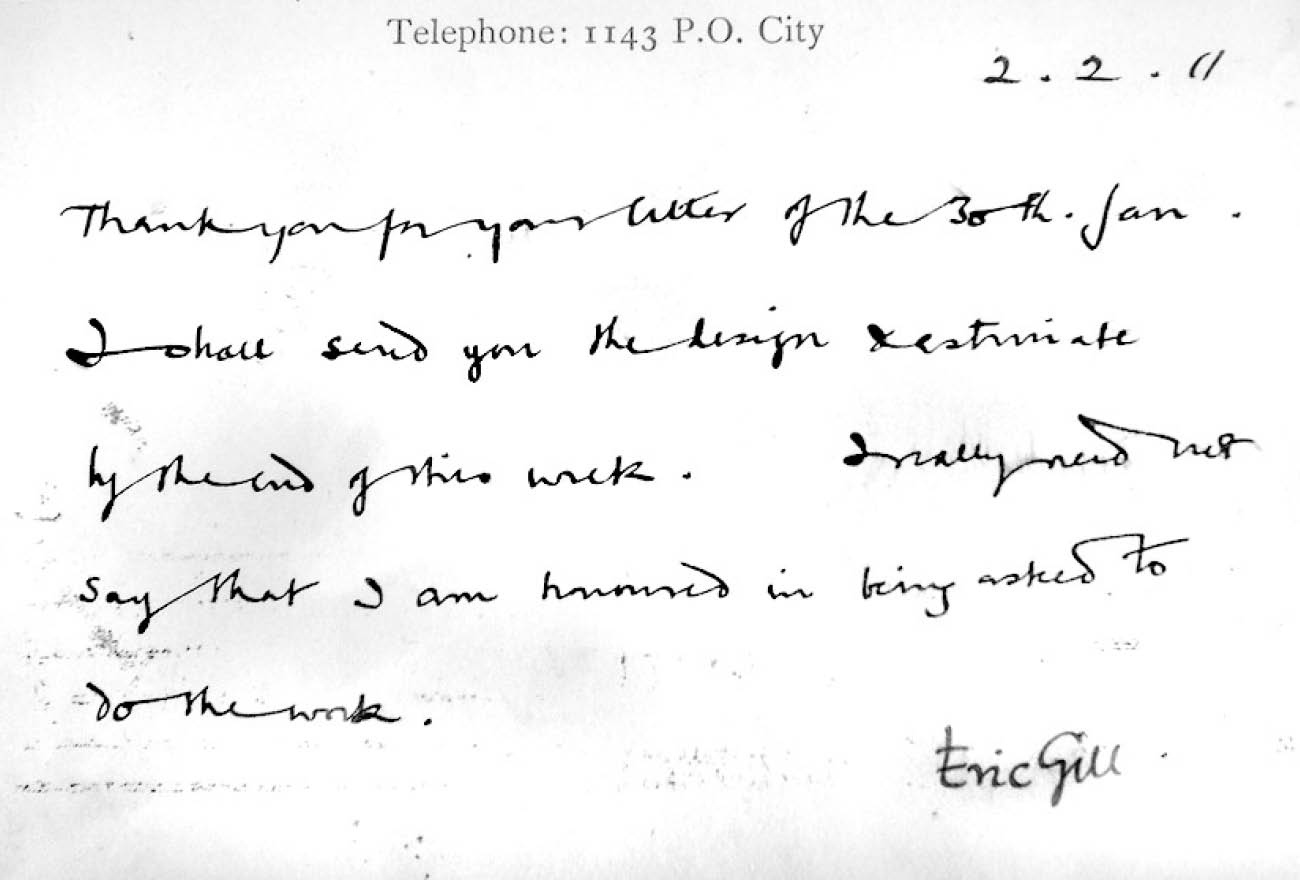 Telephone: 1143 P.O. City
2 . 2 . 11
Thank you for your letter of the 30th. Jan .
I shall send you the design & estimate
by the end of this week . I really need not
say that I am honoured in being asked to
do the work .
Eric Gill